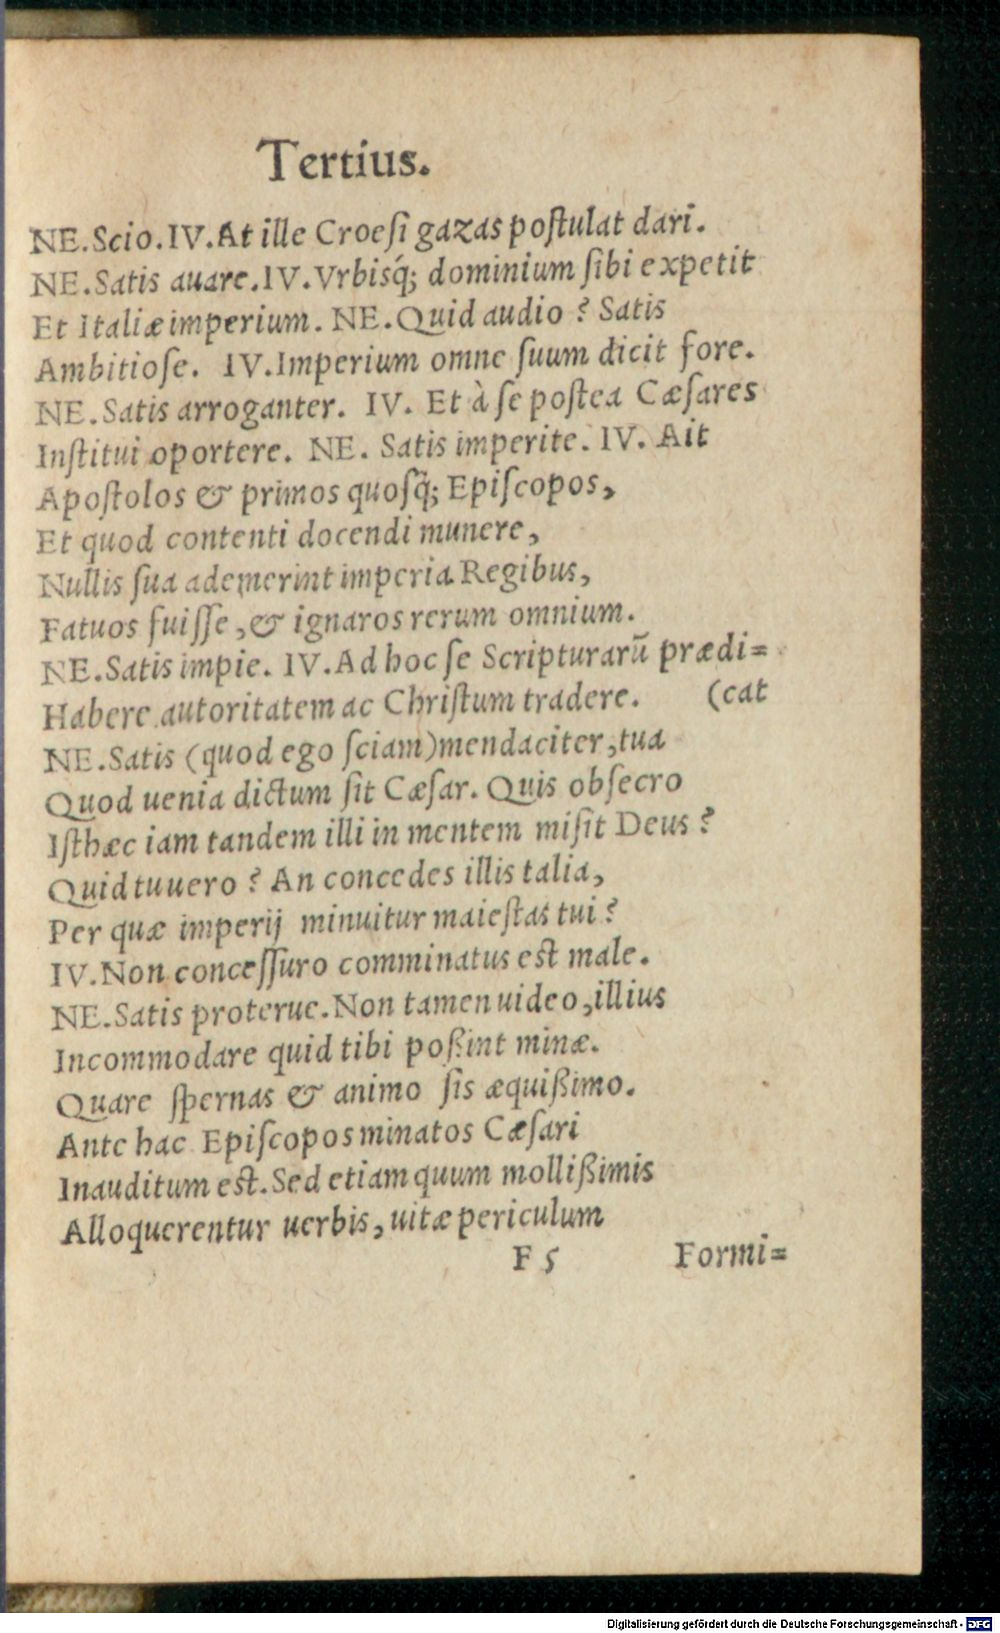 Tertius.
NE. Scio. IV. At ille Croesi gazas postulat dari.
NE. Satis auare. IV. Vrbisq́; dominium sibi expetit
Et Italiæ imperium. NE. Quid audio? Satis
Ambitiose. IV. Imperium omne suum dicit fore.
NE. Satis arroganter. IV. Et à se postea Cæsares
Institui oportere. NE. Satis imperite. IV. Ait
Apostolos & primos quosq́; Episcopos,
Et quod contenti docendi munere,
Nullis sua ademerint imperia Regibus,
Fatuos fuisse, & ignaros rerum omnium.
NE. Satis impie. IV. Ad hoc se Scripturarũ prædi=
Habere autoritatem ac Christum tradere. (cat
NE. Satis (quod ego sciam) mendaciter, tua
Quod uenia dictum sit Cæsar. Quis obsecro
Isthæc iam tandem illi in mentem misit Deus?
Quid tu uero? An concedes illis talia,
Per quæ imperij minuitur maiestas tui?
IV. Non concessuro comminatus est male.
NE. Satis proterue. Non tamen uideo, illius
Incommodare quid tibi poßint minæ.
Quare spernas & animo sis æquißimo.
Ante hac Episcopos minatos Cæsari
Inauditum est. Sed etiam quum mollißimis
Alloquerentur uerbis, uitæ periculum
F 5 Formi=
Digitalisierung gefördert durch die Deutsche Forschungsgemeinschaft - DFG